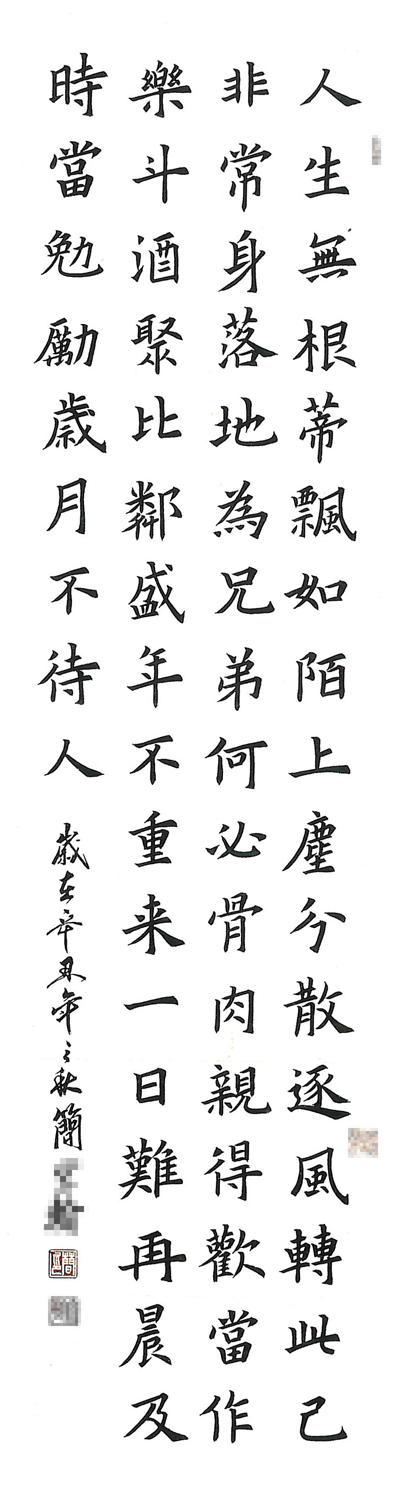 人生無根蒂飄如陌上塵分散逐風轉此已
非常身落地為兄弟何必骨肉親得歡當作
樂斗酒聚比鄰盛年不重来一日難再晨及
時當勉勵歲月不待人
歲在辛丑年之秋簡